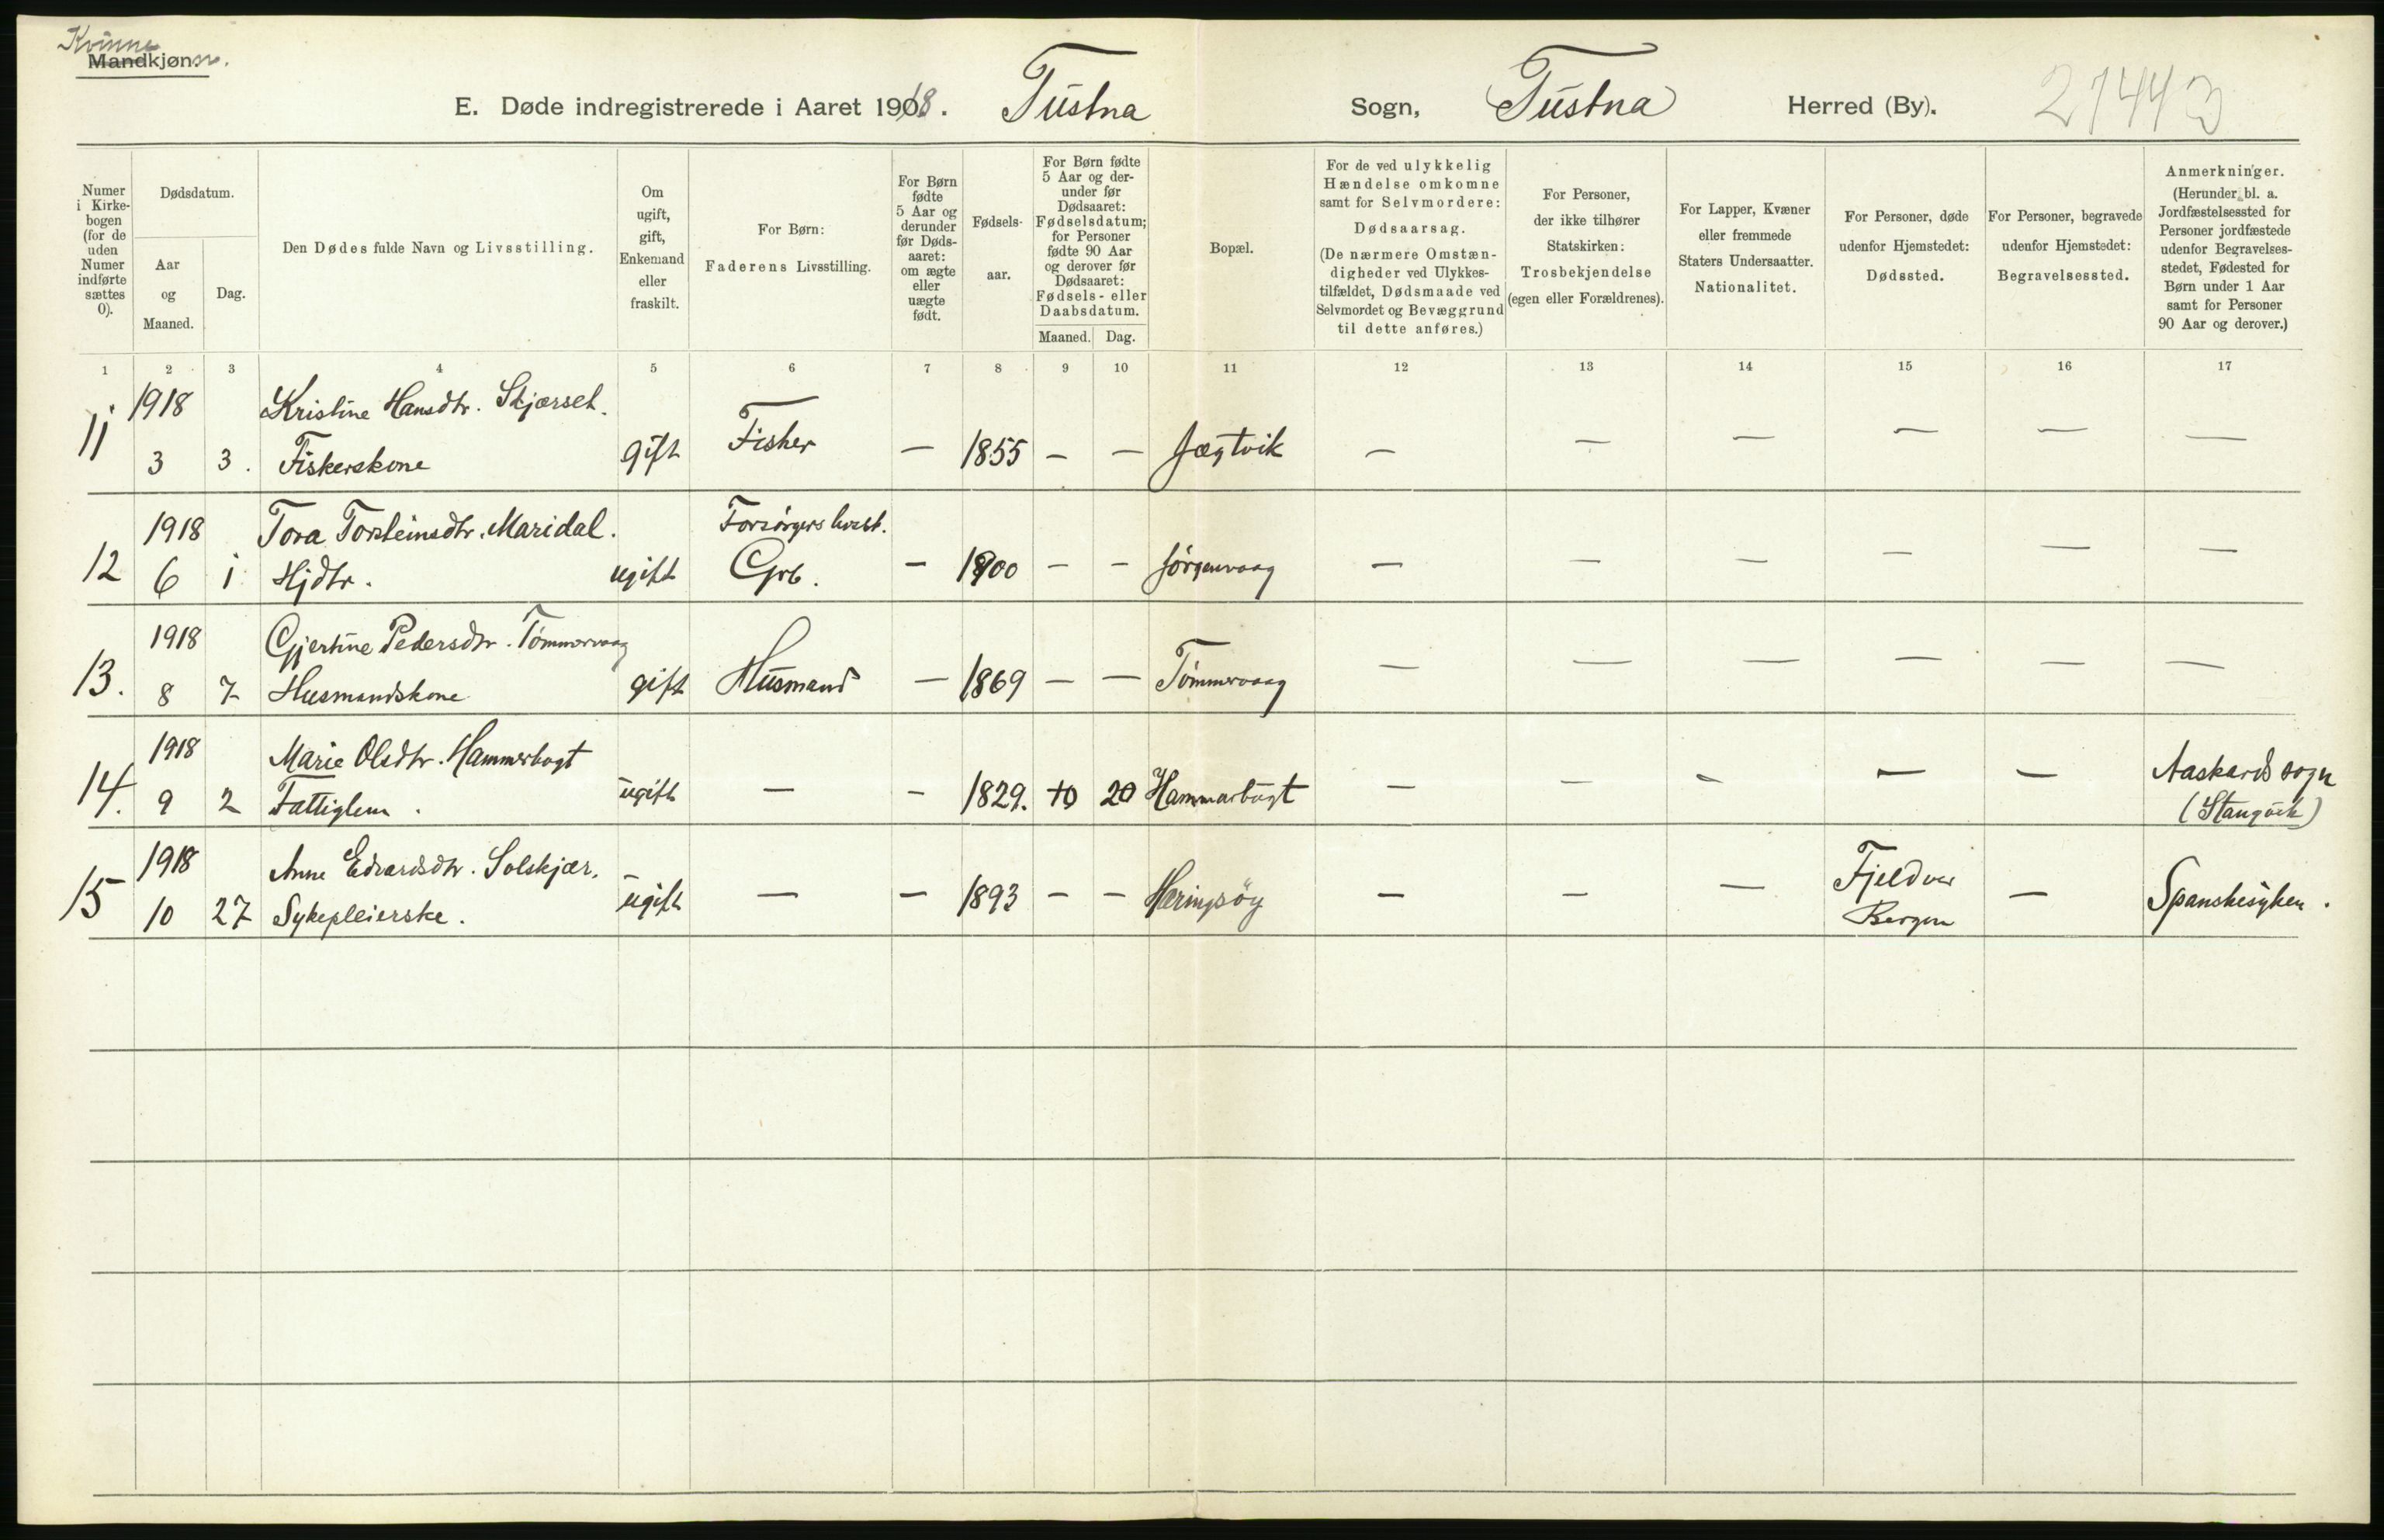 Kvinne
Mandkjøn.
E. Døde indregistrerede i Aaret 1918. Tustna Sogn, Tustna Herred (By). 27443
Numer i Kirkebogen (for de uden Numer indførte sættes 0).
Dødsdatum.
Aar og Maaned.
Dag.
Den Dødes fulde Navn og Livsstilling.
Om ugift, gift, Enkemand eller fraskilt.
For Børn: Faderens Livsstilling.
For Børn fødte 5 Aar og derunder før Dødsaaret: om ægte eller uægte født.
Fødselsaar.
For Børn fødte 5 Aar og derunder før Dødsaaret: Fødselsdatum; for Personer fødte 90 Aar og derover før Dødsaaret: Fødsels- eller Daabsdatum.
Maaned. Dag.
Bopæl.
For de ved ulykkelig Hændelse omkomne samt for Selvmordere: Dødsaarsag. (De nærmere Omstændigheder ved Ulykkestilfældet, Dødsmaade ved Selvmordet og Bevæggrund til dette anføres.)
For Personer, der ikke tilhører Statskirken: Trosbekjendelse (egen eller Forældrenes).
For Lapper, Kvæner eller fremmede Staters Undersaatter. Nationalitet.
For Personer, døde udenfor Hjemstedet: Dødssted.
For Personer, begravede udenfor Hjemstedet: Begravelsessted.
Anmerkninger. (Herunder bl. a. Jordfæstelsessted for Personer jordfæstede udenfor Begravelsesstedet, Fødested for Børn under 1 Aar samt for Personer 90 Aar og derover.)
1 2 3 4 5 6 7 8 9 10 11 12 13 14 15 16 17
1918 Kristine Hansdtr. Skjærset.
11 3 3. Fiskerskone gift Fisker — 1855 — — Jægtvik — — — — — —
1918 Tora Torsteinsdtr. Maridal. Forsørgers livsst.
12 6 1 Hjdtr. ugift Grb. — 1900 — — Jørgenvaag — — — — — —
1918 Gjertine Pedersdtr. Tømmervaag
13. 8 7 Husmandskone gift Husmand — 1869 — — Tømmervaag — — — — — —
1918 Marie Olsdtr. Hammerbugt Aaskard sogn
14. 9 2 Fattiglem. ugift — — 1829. 10 20 Hammarbugt — — — — — (Stangvik)
1918 Anne Edvardsdtr. Solskjær. Fjeldver
15 10 27 Sykepleierske. ugift — — 1893 — — Haringsøy — — — Bergen — Spanskesyken.